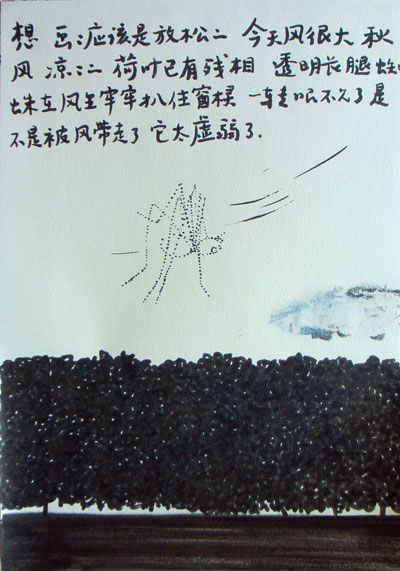 想 画:应该是放松二 今天风很大 秋
风 凉:二 荷叶已有残相 透明长腿蜘
蛛在风里牢牢扒住窗棂 一转眼不见了 是
不是被风带走了 它太虚弱了.